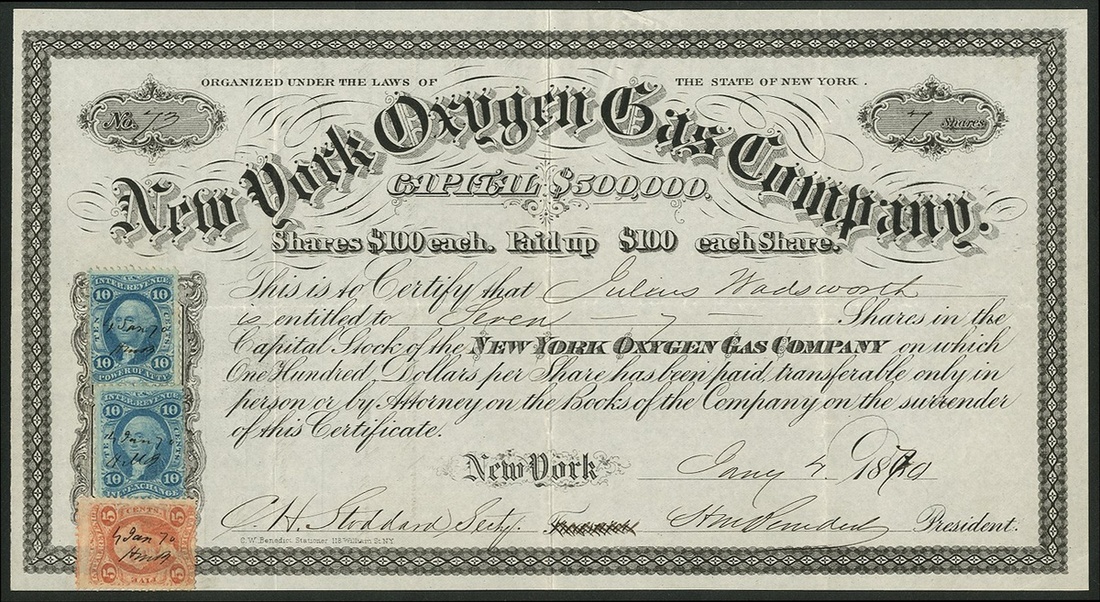 ORGANIZED UNDER THE LAWS OF THE STATE OF NEW YORK.
No. 73
7 Shares
New York Oxygen Gas Company.
CAPITAL $500,000.
Shares $100 each. Paid up $100 each Share.
This is to Certify that Julius Wadsworth
is entitled to Seven - 7 - Shares in the
Capital Stock of the NEW YORK OXYGEN GAS COMPANY on which
One Hundred Dollars per Share has been paid, transferable only in
person or by Attorney on the Books of the Company on the surrender
of this Certificate.
New York Jany 4 1870
C. H. Stoddard Secty. President.
C.W. Benedict Stationer 118 William St. N.Y.
INTER. REVENUE
10 10
CENTS
4 Jan 70
10 10
POWER OF ATTY
INTER. REVENUE
10 10
4 Jan 70
10 10
INL. EXCHANGE
5 CENTS 5
4 Jan 70
5 5